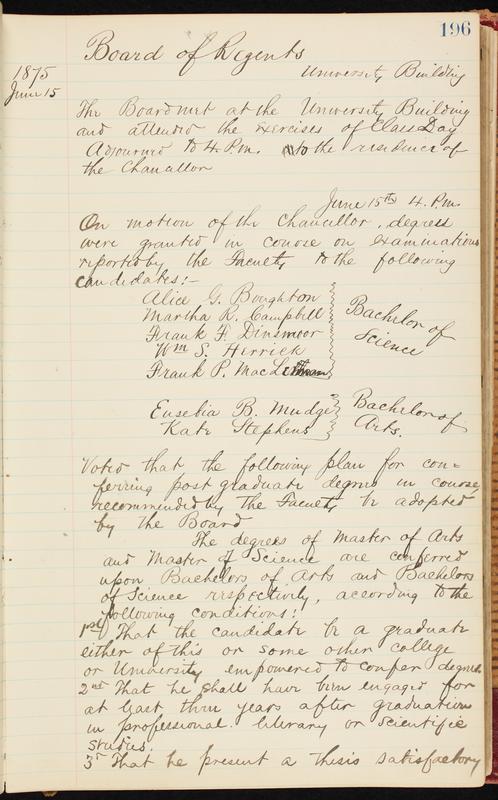 196
Board of Regents
1875
University Building
June 15
The Board met at the University Building
and attended the exercises of Class Day
Adjourned to 4 P.m. to the residence of
the Chancellor
June 15th 4. P.m.
On motion of the Chancellor, degrees
were granted in course on examinations
reported by the Faculty to the following
candidates:-
Alice G. Boughton
Martha R. Campbell
Frank F. Dinsmoor
Wm S. Herrick
Frank P. Mac
Bachelor of
Science
Eusebia B. Mudge
Kate Stephens
Bachelor of
Arts.
Voted that the following plan for con=
ferring post graduate degrees in course,
recommended by the Faculty be adopted
by the Board
The degrees of Master of Arts
and Master of Science are conferred
upon Bachelors of Arts and Bachelors
of Science respectively, according to the
following conditions:
1st That the candidate be a graduate
either of this or some other college
or University empowered to confer degrees
2nd That he shall have been engaged for
at least three years after graduation
in professional. literary or scientific
studies.
3d That he present a thesis satisfactory